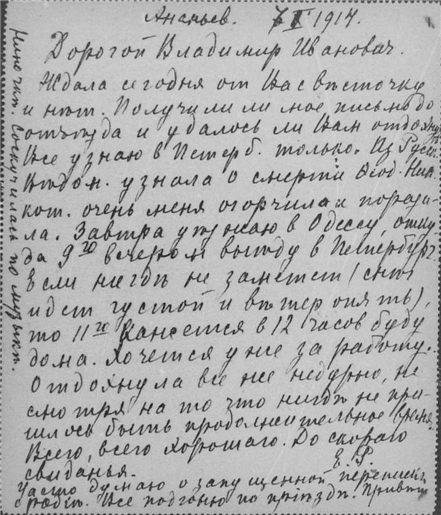 Ананьев. 7 I 1917.
Дорогой Владимир Иванович.
Ждала сегодня от Вас весточку
и нѣт. Получили ли мое письмо до
отъѣзда и удалось ли Вам отдохнуть
Все узнаю в Петерб. только. Из Русск.
Вѣдом. узнала о смерти Ѳеод.
кот. очень меня огорчила и порази-
ла. Завтра уѣзжаю в Одессу, отку
да 9го вечером выѣду в Петербург
Если нигдѣ не заметет (снѣг
идет густой и вѣтер опять),
то 11го в 12 часов буду
дома. Хочется уже за работу.
Отдохнула все же недурно, не
смотря на то что нигдѣ не при-
шлось быть продолжительное время.
Всего, всего хорошаго. До скораго
свиданья.
Часто думаю о запущенной переписке
Все подгоню по пріѣздѣ. Привѣт
Ниночкѣ. Соскучилась по музыкѣ.